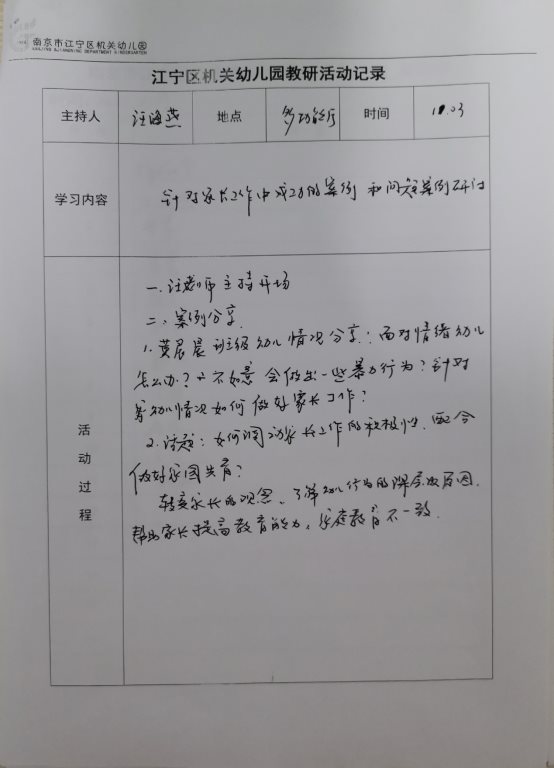 南京市江宁区机关幼儿园
NANJING JIANGNING DEPARTMENT KINDERGARTEN
江宁区机关幼儿园教研活动记录
主持人 汪海燕 地点 多功能厅 时间 10.03
学习内容 针对家长工作中成功的案例和问题案例研讨
活动过程
一、汪老师主持开场
二、案例分享
1、黄晨晨班级幼儿情况分享：面对情绪幼儿
怎么办？一不如意会做出一些暴力行为？针对
幼儿情况如何做好家长工作？
2、话题：如何调动家长工作的积极性，配合
做好家园共育？
转变家长的观念、了解幼儿行为的深层次原因，
帮助家长提高教育能力，家庭教育不一致.